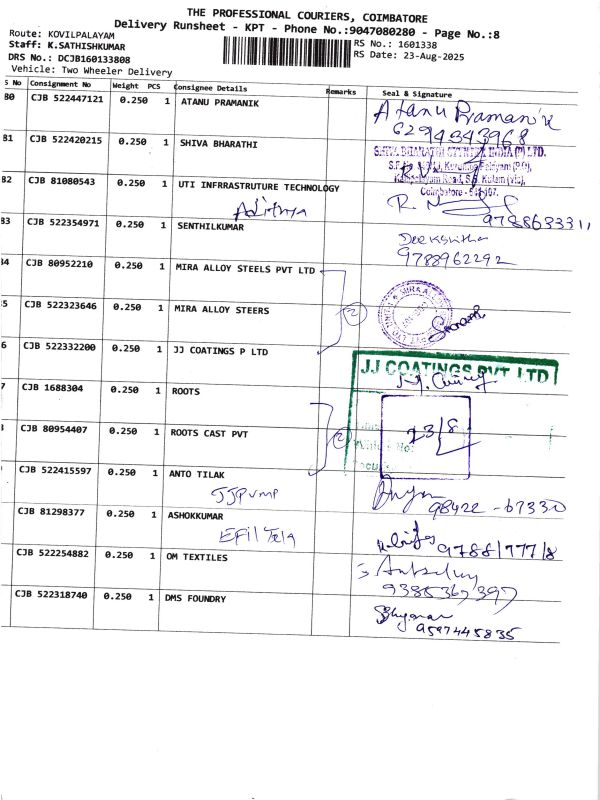 THE PROFESSIONAL COURIERS, COIMBATORE
Delivery Runsheet - KPT - Phone No.:9047080280 - Page No.:8
Route: KOVILPALAYAM
Staff: K.SATHISHKUMAR
RS No.: 1601338
DRS No.: DCJB160133808
RS Date: 23-Aug-2025
Vehicle: Two Wheeler Delivery
S No Consignment No Weight PCS Consignee Details Remarks Seal & Signature
80 CJB 522447121 0.250 1 ATANU PRAMANIK Atanu Pramanik
6294343968
81 CJB 522420215 0.250 1 SHIVA BHARATHI
82 CJB 81080543 0.250 1 UTI INFRRASTRUTURE TECHNOLOGY
Adithya
83 CJB 522354971 0.250 1 SENTHILKUMAR
9788962292
84 CJB 80952210 0.250 1 MIRA ALLOY STEELS PVT LTD
2
5 CJB 522323646 0.250 1 MIRA ALLOY STEERS
6 CJB 522332200 0.250 1 JJ COATINGS P LTD
JJ COATINGS PVT LTD
7 CJB 1688304 0.250 1 ROOTS
23/8
CJB 80954407 0.250 1 ROOTS CAST PVT
2
CJB 522415597 0.250 1 ANTO TILAK
JJPump
98422-67330
CJB 81298377 0.250 1 ASHOKKUMAR
9788177718
CJB 522254882 0.250 1 OM TEXTILES
9385367397
CJB 522318740 0.250 1 DMS FOUNDRY
9597445835